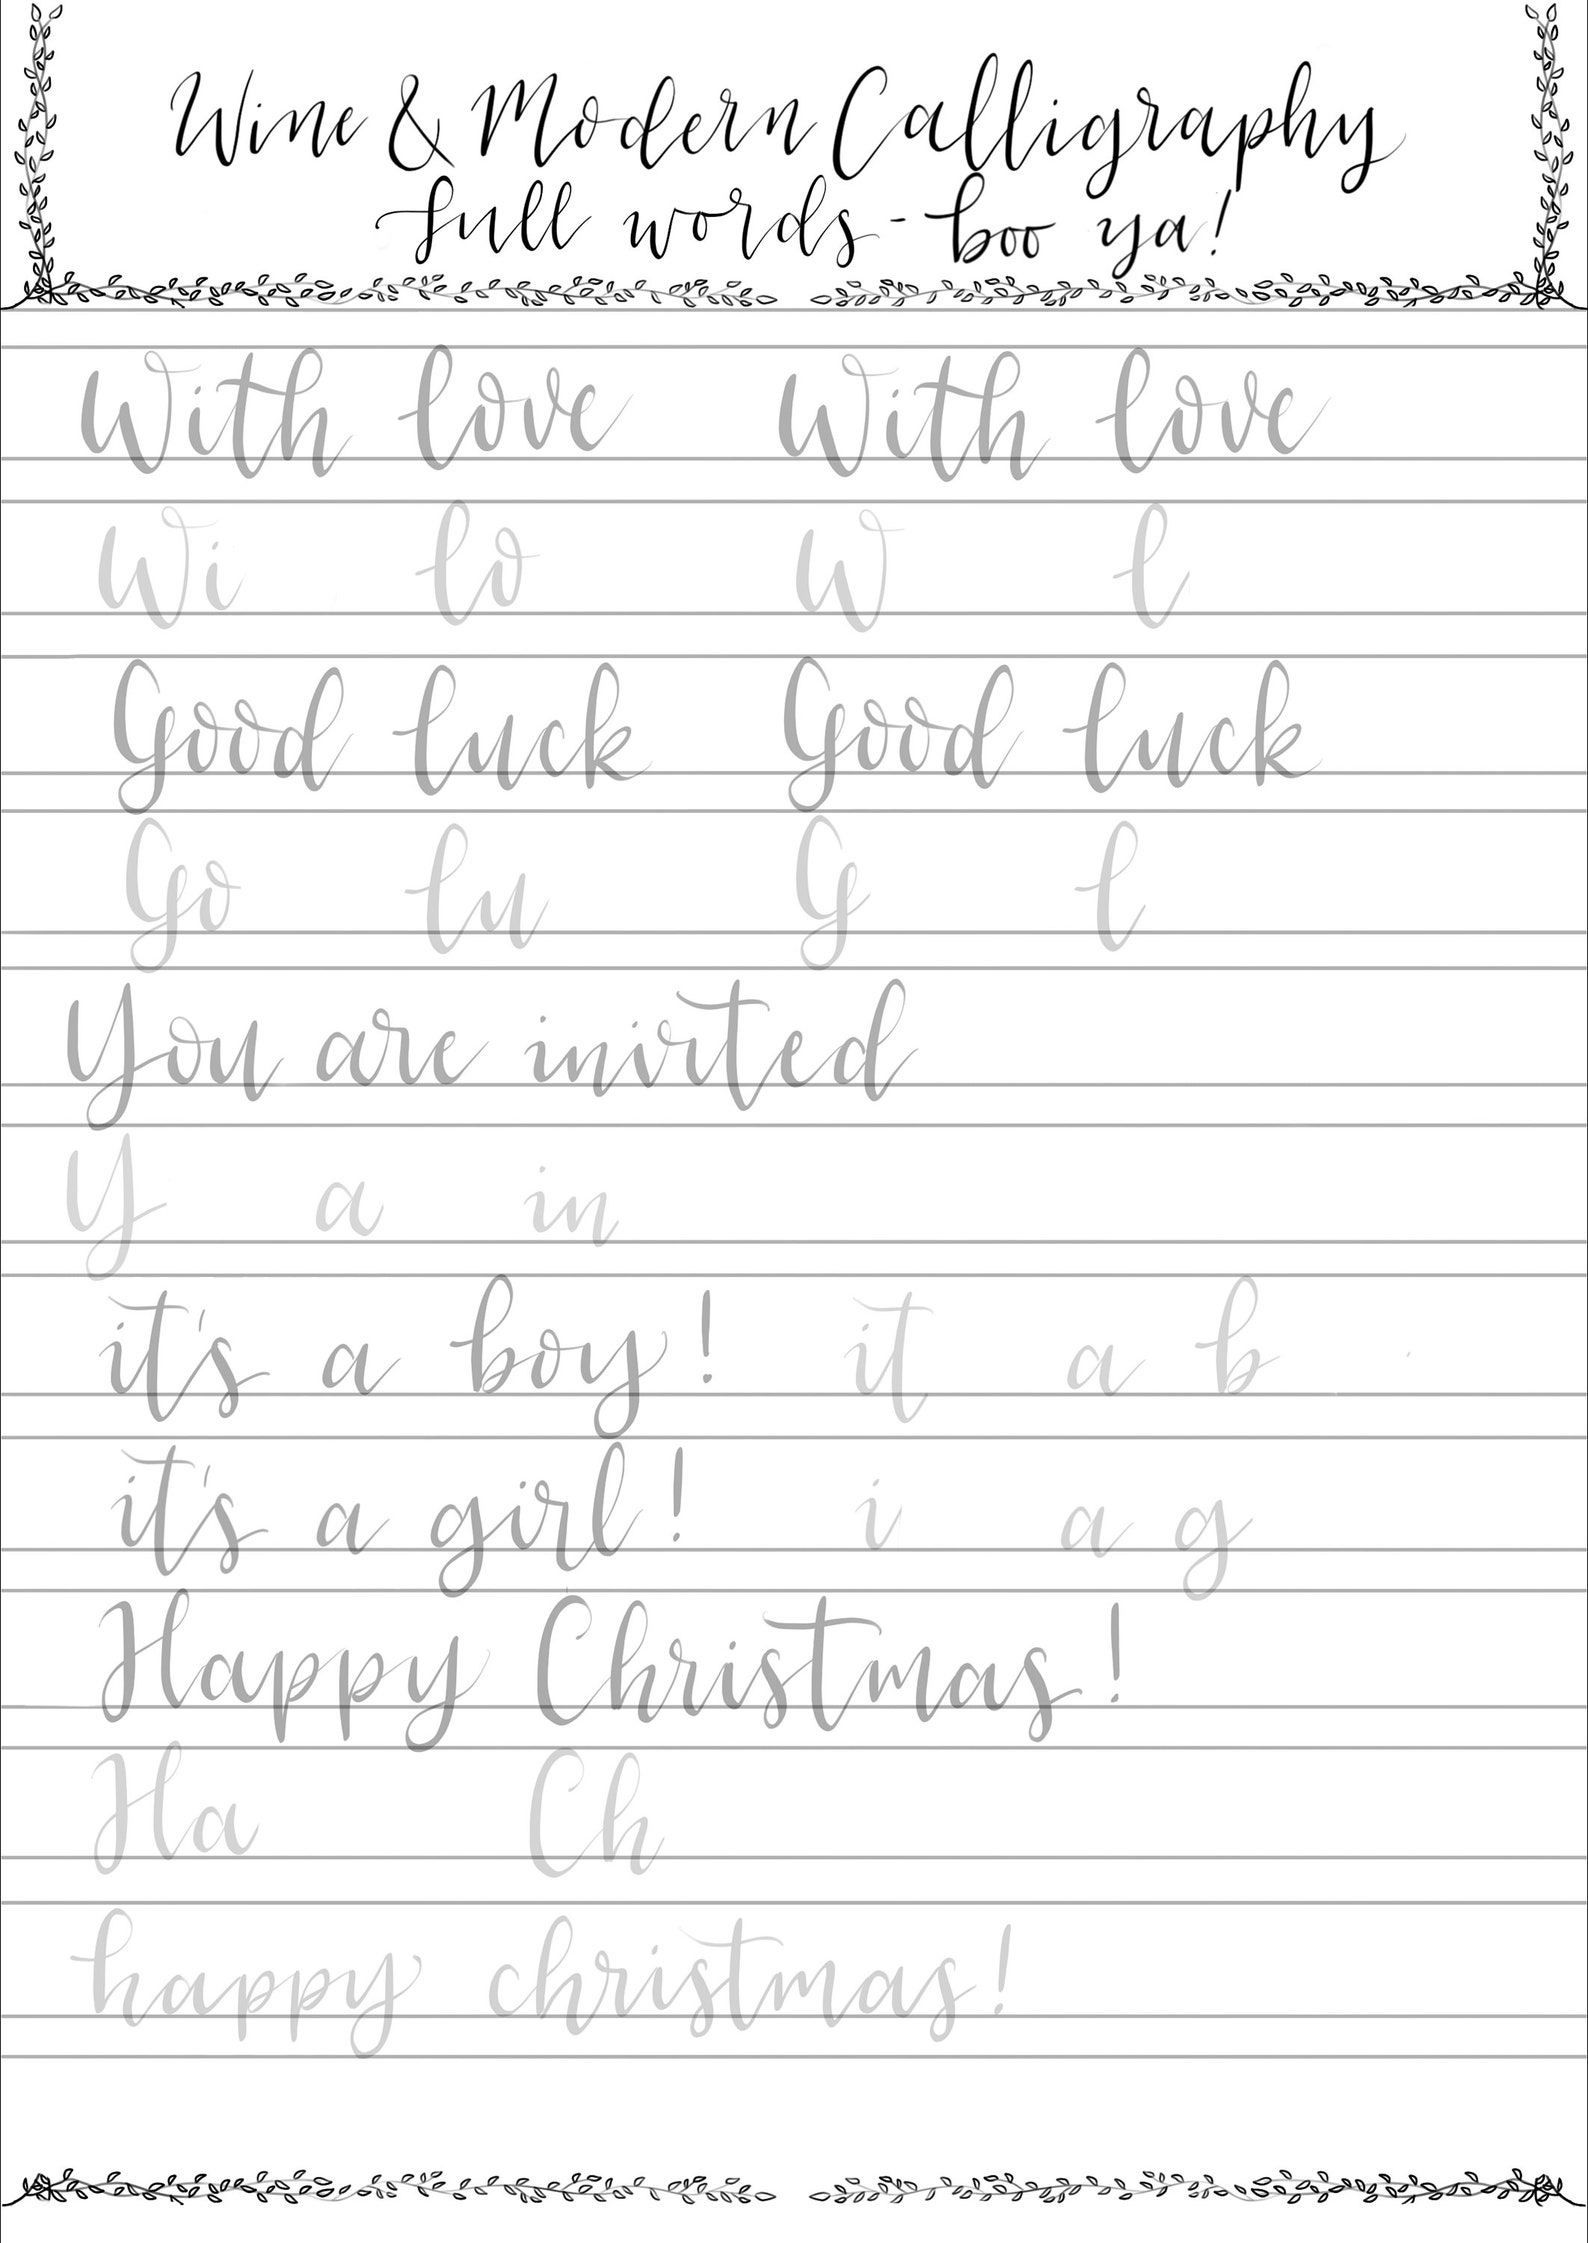 Wine & Modern Calligraphy
full words - boo ya!
With love With love
Wi lo W l
Good luck Good luck
Go lu G l
You are invited
Y a in
it's a boy! it a b
it's a girl! i a g
Happy Christmas!
Ha Ch
happy christmas!